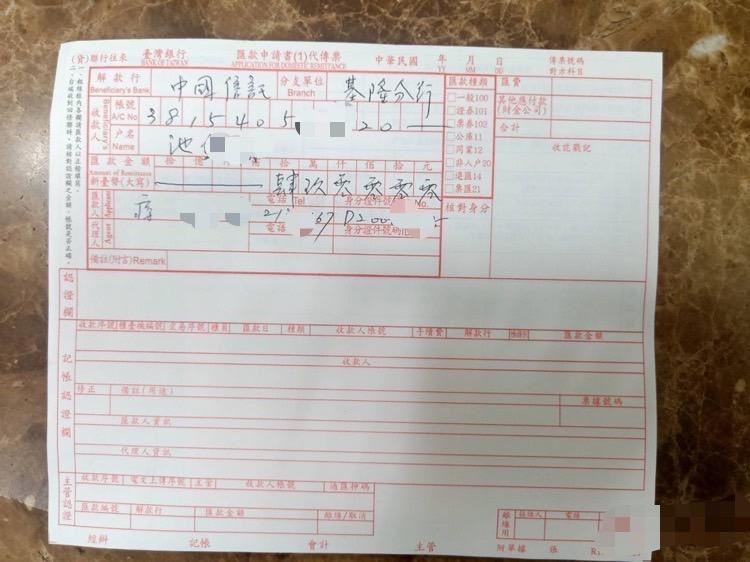 (貸)聯行往來 臺灣銀行 匯款申請書(1)代傳票 中華民國 年 月 日 傳票號碼
BANK OF TAIWAN APPLICATION FOR DOMESTIC REMITTANCE YY MM DD 對方科目
解款行 中國信託 分支單位 基隆分行 匯款種類 匯費
Beneficiary's Bank Branch
收款人 Beneficiary's 帳號 A/C No 3815405 20
戶名 Name 池
一般100
證券101
票券102
公庫11
同業12
非入戶20
退匯14
票匯21
其他應付款
(財金公司)
合計
收訖戳記
匯款金額 拾 億 萬 仟 佰 拾 元
Amount of Remittance
新臺幣(大寫) 肆玖零零零零
匯款人 Applicant 電話 Tel 身分證件號 No. 核對身分
代理人 Agent 電話 身分證件號碼ID
備註(附言)Remark
認證欄
收款序號 櫃臺機編號 交易序號 櫃員 匯款日 種類 收款人帳號 手續費 解款行 匯款金額
收款人
記帳認證欄
修正 備註(用途) 票據號碼
匯款人資訊
代理人資訊
主管認證
收款序號 電文上傳序號 主管 收款人帳號 通匯押碼
匯款編號 解款行 匯款金額 離線/取消
離線用 電話
經辦 記帳 會計 主管 附單據 張